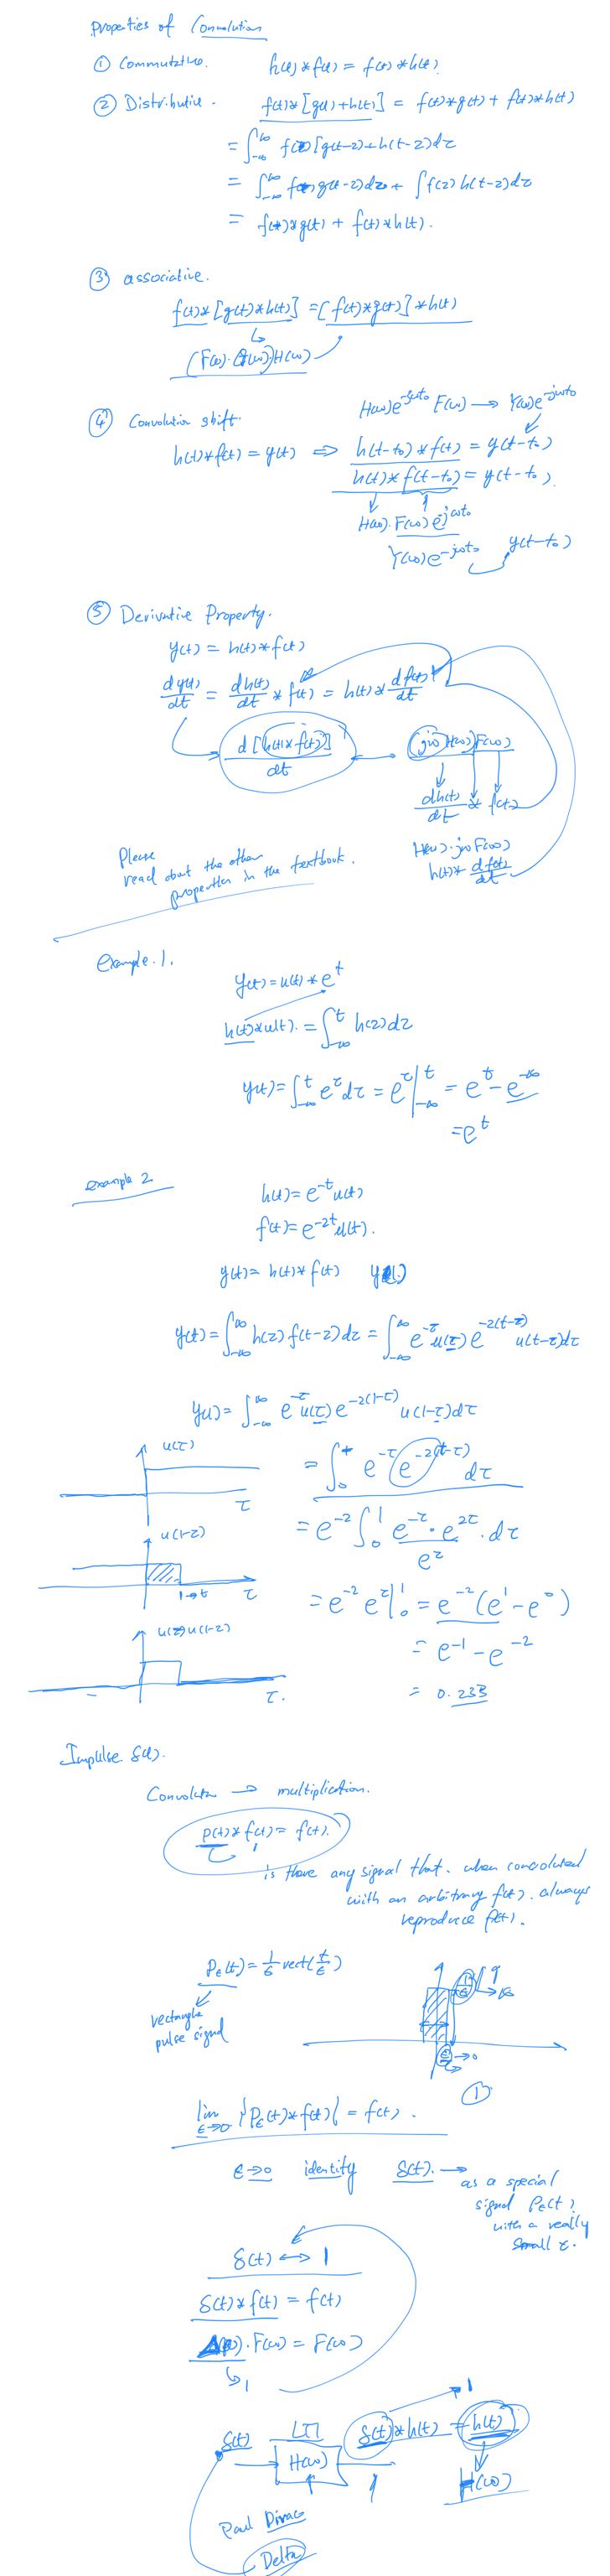 Properties of Convolution
① Commutative. h(t)*f(t) = f(t)*h(t).
② Distributive. f(t)*[g(t)+h(t)] = f(t)*g(t) + f(t)*h(t)
= ∫_{-∞}^{∞} f(τ)[g(t-τ)+h(t-τ)]dτ
= ∫_{-∞}^{∞} f(τ)g(t-τ)dτ + ∫f(τ)h(t-τ)dτ
= f(t)*g(t) + f(t)*h(t).
③ associative.
f(t)*[g(t)*h(t)] = [f(t)*g(t)]*h(t)
(F(ω)·G(ω))H(ω)
H(ω)e^{-jωt₀} F(ω) → Y(ω)e^{-jωt₀}
④ Convolution shift.
h(t)*f(t) = y(t) ⇒ h(t-t₀)*f(t) = y(t-t₀)
h(t)*f(t-t₀) = y(t-t₀).
H(ω)·F(ω)e^{-jωt₀}
Y(ω)e^{-jωt₀} y(t-t₀)
⑤ Derivative Property.
y(t) = h(t)*f(t)
dy(t)/dt = dh(t)/dt * f(t) = h(t)* df(t)/dt
d[h(t)*f(t)]/dt ← (jω)H(ω)F(ω)
dh(t)/dt * f(t)
H(ω)·jωF(ω)
h(t)* df(t)/dt
Please
read about the other
properties in the textbook.
example.1.
y(t) = u(t)*e^t
h(t)*u(t). = ∫_{-∞}^{t} h(τ)dτ
y(t) = ∫_{-∞}^{t} e^τ dτ = e^τ|_{-∞}^{t} = e^t - e^{-∞}
= e^t
example 2
h(t) = e^{-t}u(t)
f(t) = e^{-2t}u(t).
y(t) = h(t)*f(t) y(1.)
y(t) = ∫_{-∞}^{∞} h(τ)f(t-τ)dτ = ∫_{-∞}^{∞} e^{-τ}u(τ)e^{-2(t-τ)}u(t-τ)dτ
y(1) = ∫_{-∞}^{∞} e^{-τ}u(τ)e^{-2(1-τ)}u(1-τ)dτ
u(τ)
τ
= ∫_0^t e^{-τ}e^{-2(t-τ)}dτ
= e^{-2}∫_0^1 e^{-τ}·e^{2τ}·dτ
e^τ
u(1-τ)
1→t τ
= e^{-2}e^τ|_0^1 = e^{-2}(e^1-e^0)
= e^{-1}-e^{-2}
= 0.233
u(τ)u(1-τ)
τ.
Impulse δ(t).
Convolution → multiplication.
p(t)*f(t) = f(t).
is there any signal that. when convoluted
with an arbitrary f(t). always
reproduce f(t).
P_ε(t) = 1/ε rect(t/ε)
rectangle
pulse signal
①
lim_{ε→0} {P_ε(t)*f(t)} = f(t).
ε→0 identity δ(t). → as a special
signal P_ε(t)
with a really
small ε.
δ(t) ↔ 1
δ(t)*f(t) = f(t)
·F(ω) = F(ω)
↳ 1
δ(t) LTI δ(t)*h(t) = h(t)
1
H(ω) H(ω)
Paul Dirac
Delta